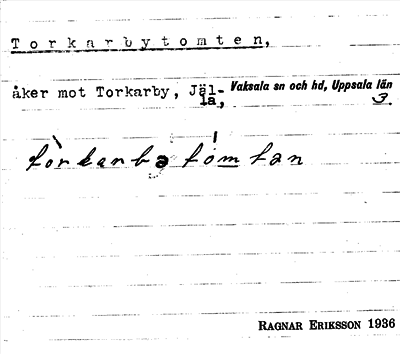 Torkarbytomten,
åker mot Torkarby, Jäl- Vaksala sn och hd, Uppsala län
la, 3.
tòrkarbə tómtan
RAGNAR ERIKSSON 1936